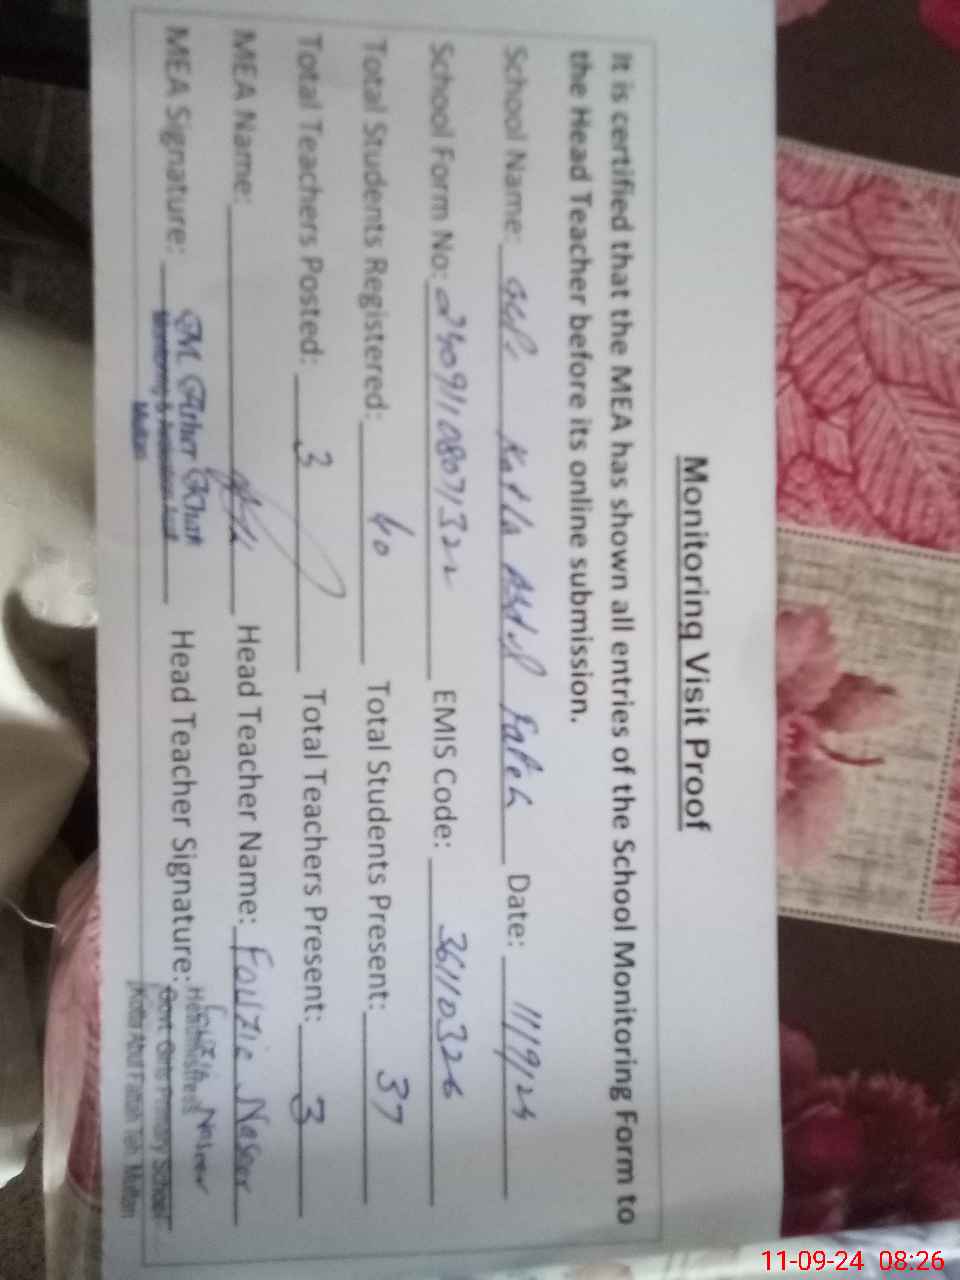 Monitoring Visit Proof
It is certified that the MEA has shown all entries of the School Monitoring Form to
the Head Teacher before its online submission.
School Name: Kotla Abdul Fateh Date: 11/9/24
School Form No: EMIS Code: 36110326
Total Students Registered: 40 Total Students Present: 37
Total Teachers Posted: 3 Total Teachers Present: 3
MEA Name: Head Teacher Name: Fouzie Naseer
MEA Signature: Head Teacher Signature:
Headmistress
Govt. Girls Primary School
Multan
11-09-24 08:26